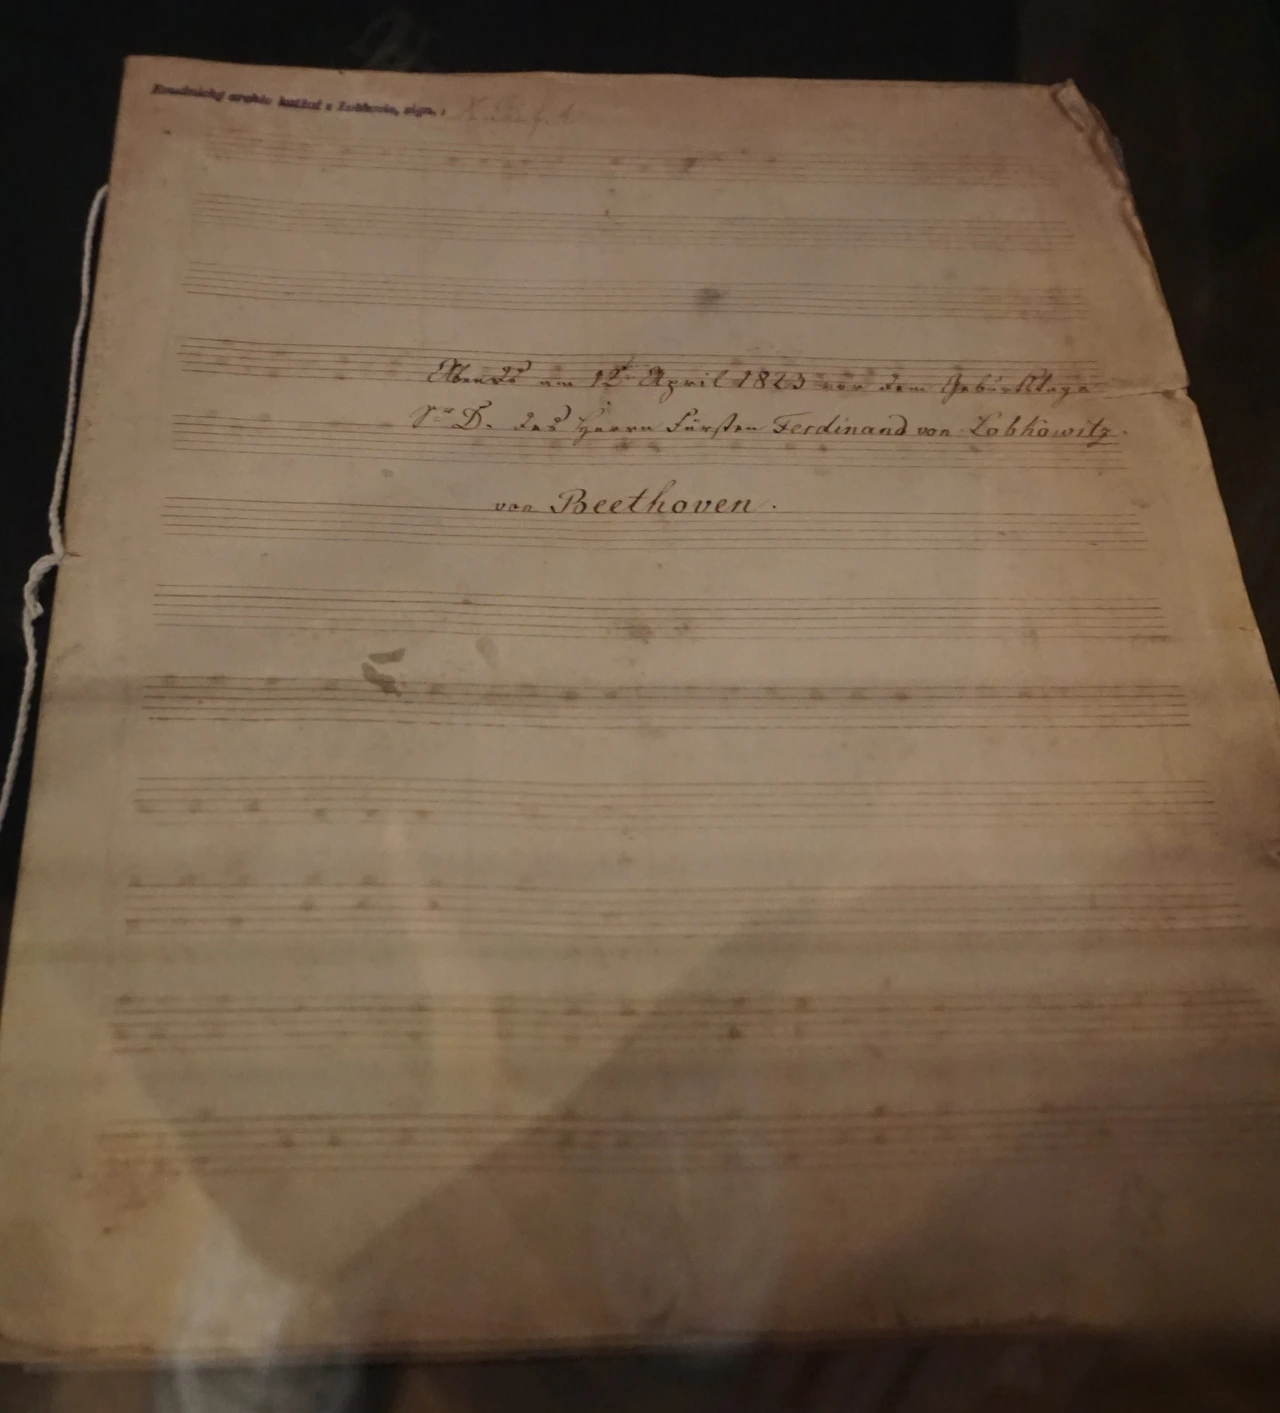 Roudnický archiv knížat z Lobkovic, sign. :
Abends am 12t April 1823 vor dem Geburtstage
Sr D. des Herrn Fürsten Ferdinand von Lobkowitz.
von Beethoven.